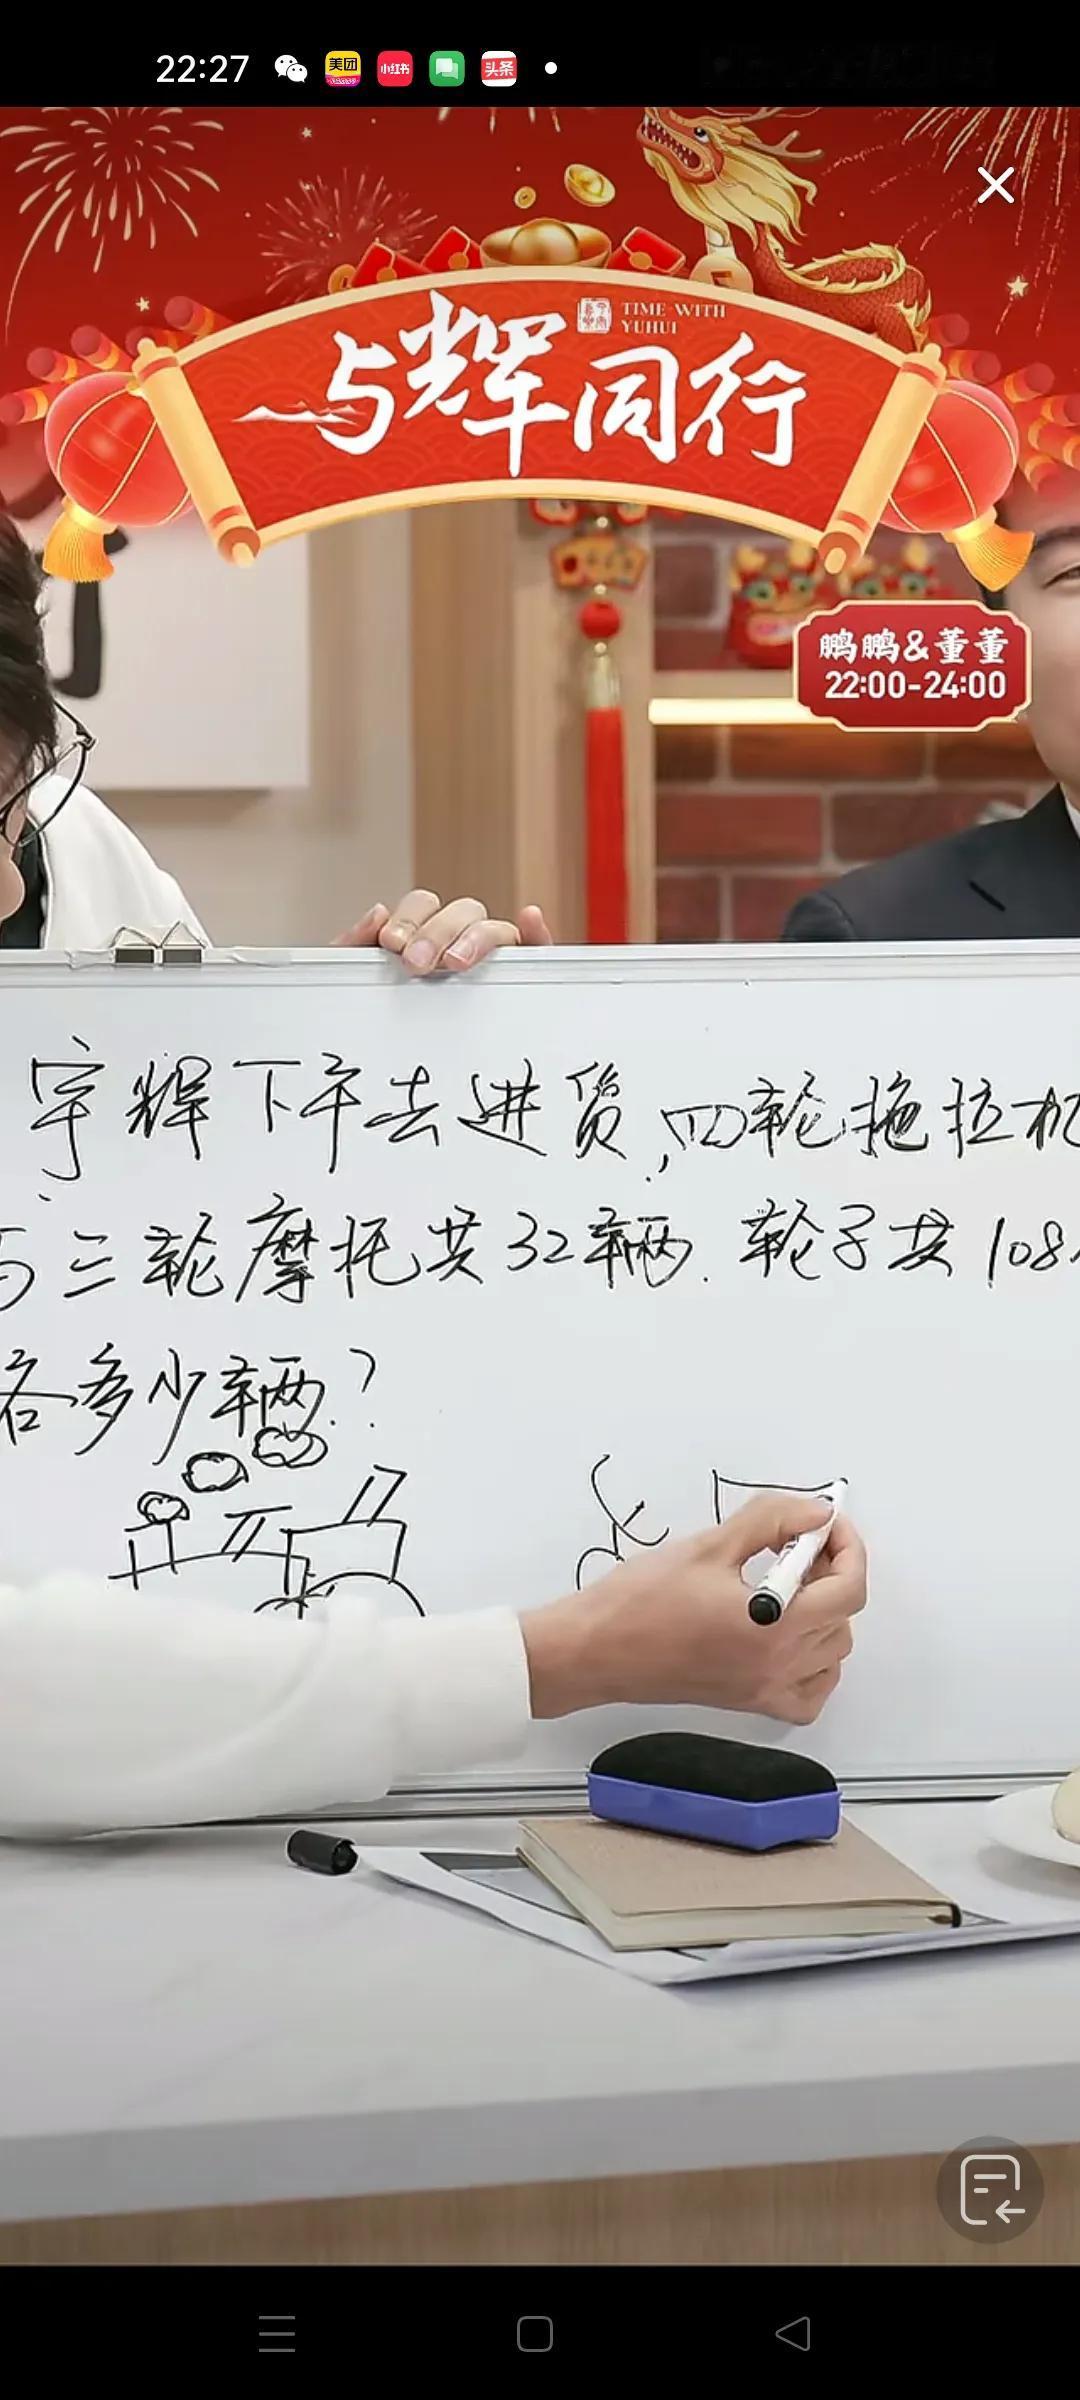 22:27
美团
小红书
头条
TIME WITH
YUHUI
与辉同行
鹏鹏&董董
22:00-24:00
宇辉下午去进货,四轮拖拉机
与三轮摩托共32辆.轮子共108
各多少辆?